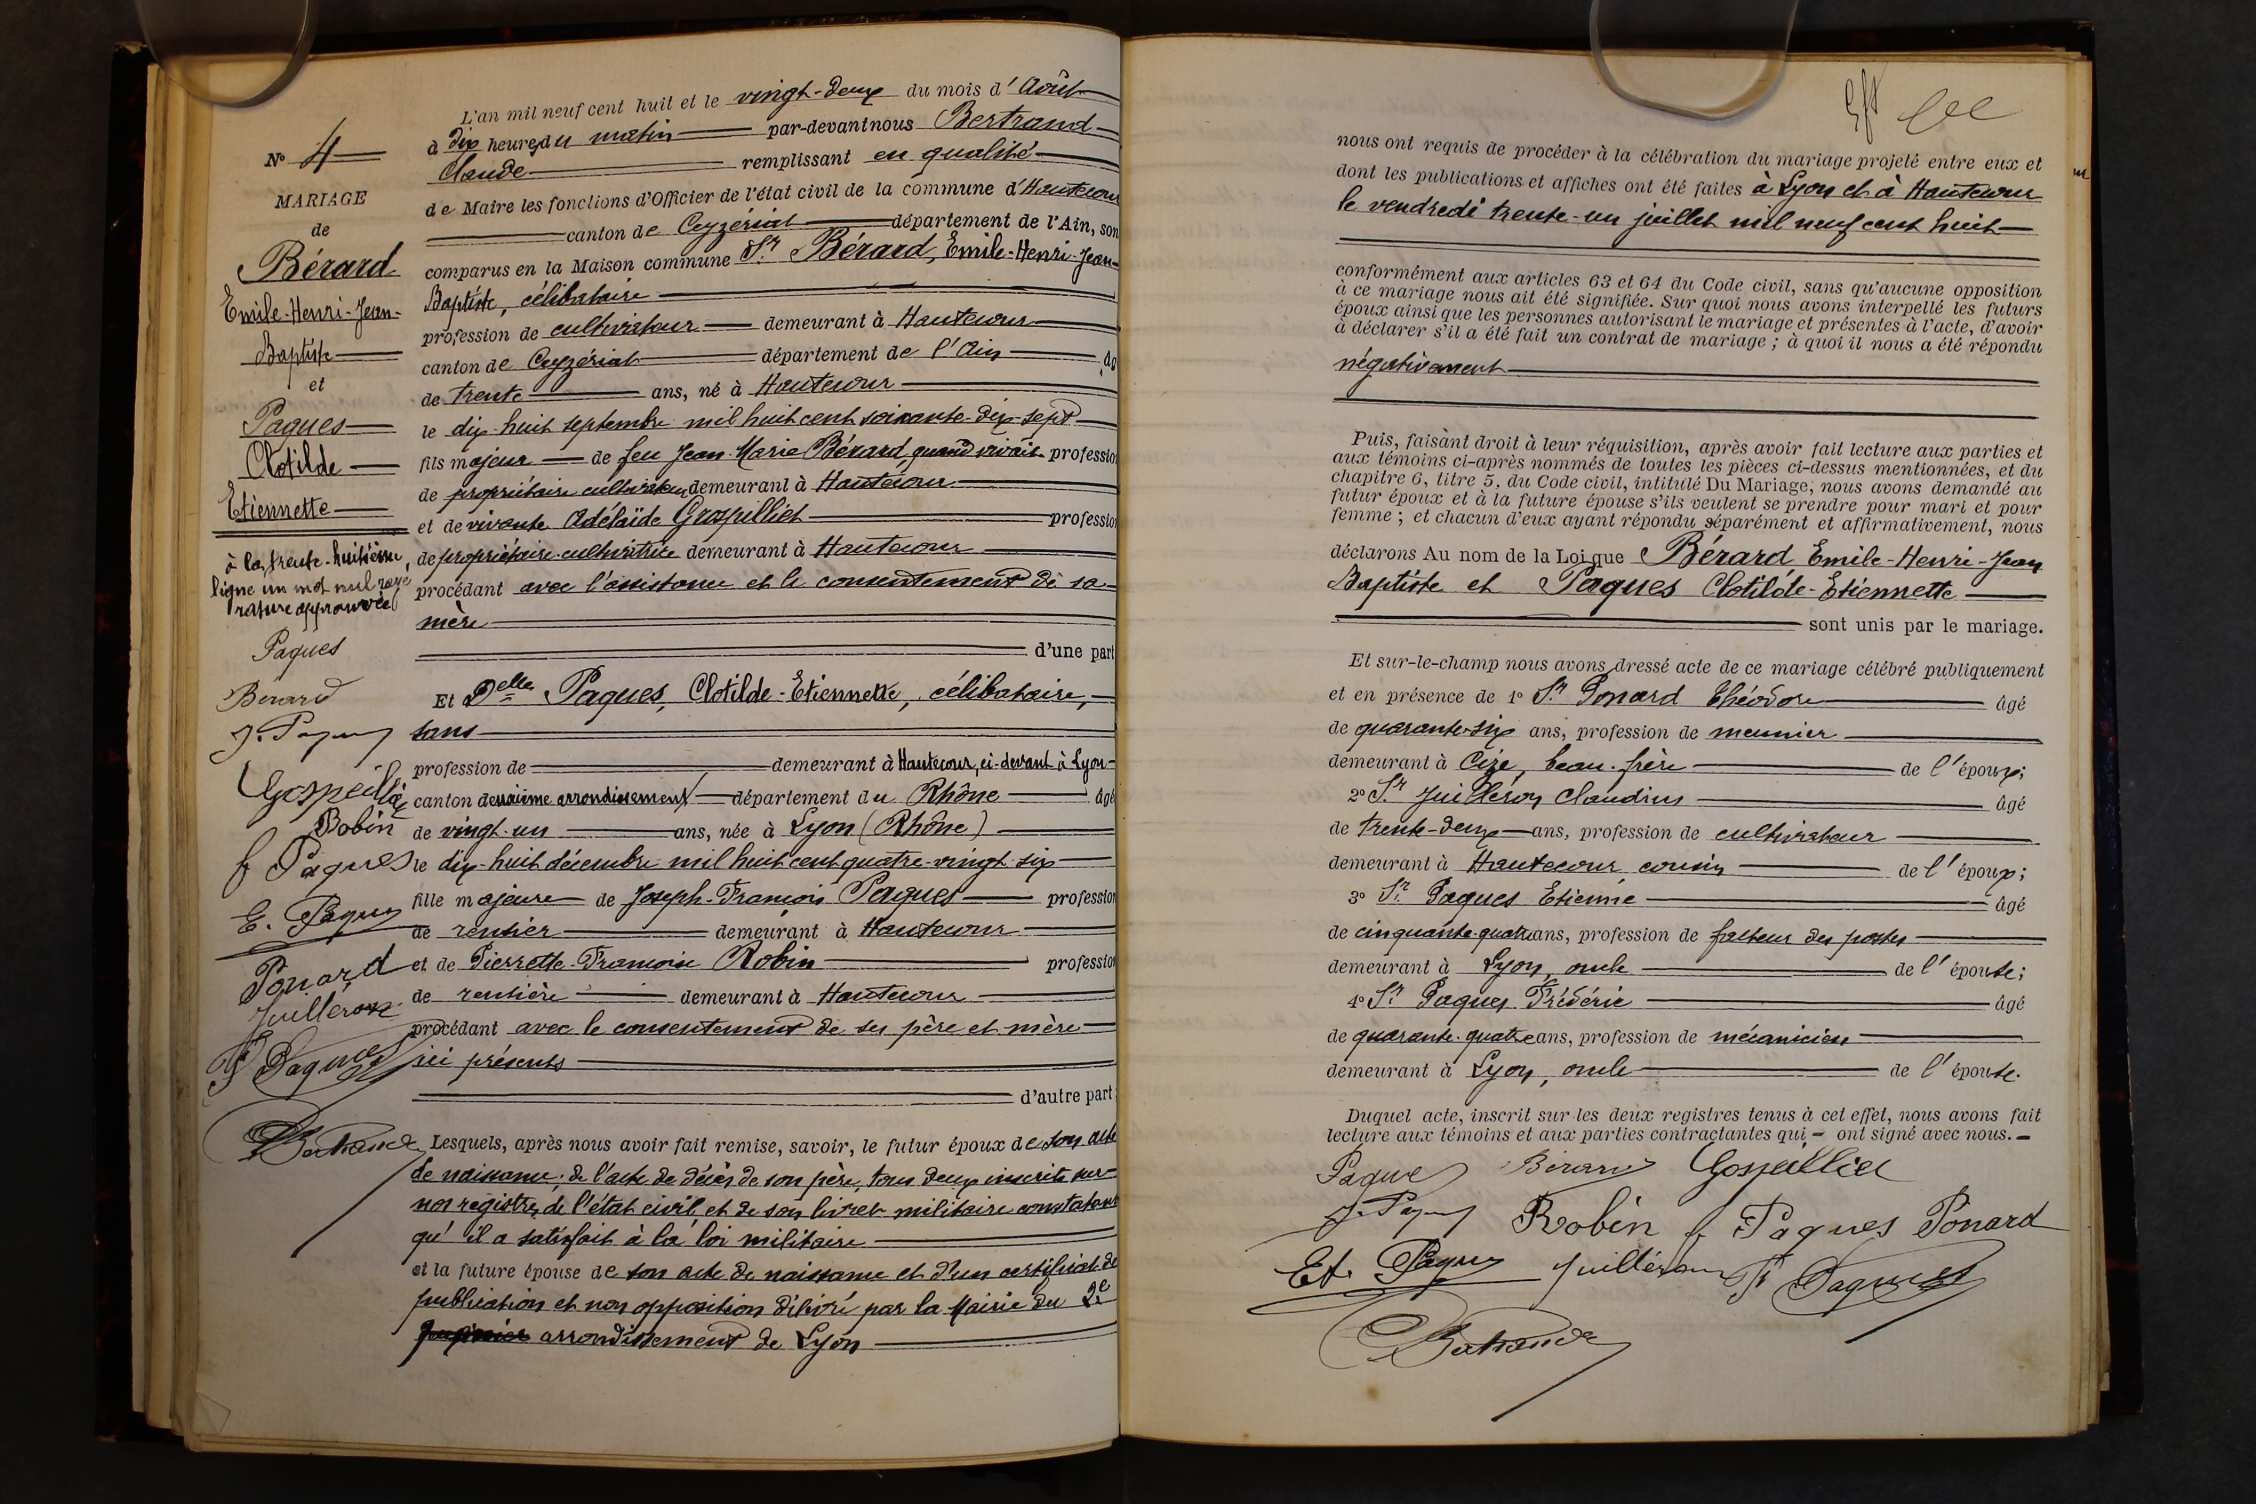 L'an mil neuf cent huit et le vingt-deux du mois d'Août
à dix heures du matin par-devant nous Bertrand
Claude remplissant en qualité
de Maire les fonctions d'Officier de l'état civil de la commune d'Hautecour
canton de Ceyzériat département de l'Ain, son
comparus en la Maison commune Sr Bérard, Emile-Henri-Jean-
Baptiste, célibataire
profession de cultivateur demeurant à Hautecour
canton de Ceyzériat département de l'Ain âg
de trente ans, né à Hautecour
le dix-huit septembre mil huit cent soixante-dix-sept
fils majeur de feu Jean-Marie Bérard, quand vivait professio
de propriétaire cultivateur demeurant à Hautecour
et de vivante Adélaïde Gropilliet professio
de propriétaire-cultivatrice demeurant à Hautecour
procédant avec l'assistance et le consentement de sa
mère
d'une part
Et Delle Paques, Clotilde-Etiennette, célibataire,
sans
profession de demeurant à Hautecour, ci-devant à Lyon
canton deuxième arrondissement département du Rhône âgé
de vingt-un ans, née à Lyon (Rhône)
le dix-huit décembre mil huit cent quatre-vingt-six
fille majeure de Joseph-François Paques profession
de rentier demeurant à Hautecour
et de Pierrette-Françoise Robin professio
de rentière demeurant à Hautecour
procédant avec le consentement de ses père et mère
ici présents
d'autre part
Lesquels, après nous avoir fait remise, savoir, le futur époux de son acte
de naissance; de l'acte de décès de son père, tous deux inscrits sur
nos registres de l'état civil et de son livret militaire constatant
qu'il a satisfait à la loi militaire
et la future épouse de son acte de naissance et d'un certificat de
publication et non opposition délivré par la Mairie du 2e
arrondissement de Lyon
No 4
MARIAGE
de
Bérard
Emile-Henri-Jean-
Baptiste
et
Paques
Clotilde
Etiennette
à la trente-huitième
ligne un mot nul rayé
rature approuvée
Paques
Bérard
J. Paques
Gospillie
Robin
f Paques
E. Paques
Ponard
Juilléron
F Paques
Bertrand
nous ont requis de procéder à la célébration du mariage projeté entre eux et
dont les publications et affiches ont été faites à Lyon et à Hautecour
le vendredi trente-un juillet mil neuf cent huit
conformément aux articles 63 et 64 du Code civil, sans qu'aucune opposition
à ce mariage nous ait été signifiée. Sur quoi nous avons interpellé les futurs
époux ainsi que les personnes autorisant le mariage et présentes à l'acte, d'avoir
à déclarer s'il a été fait un contrat de mariage ; à quoi il nous a été répondu
négativement
Puis, faisant droit à leur réquisition, après avoir fait lecture aux parties et
aux témoins ci-après nommés de toutes les pièces ci-dessus mentionnées, et du
chapitre 6, titre 5, du Code civil, intitulé Du Mariage, nous avons demandé au
futur époux et à la future épouse s'ils veulent se prendre pour mari et pour
femme ; et chacun d'eux ayant répondu séparément et affirmativement, nous
déclarons Au nom de la Loi que Bérard Emile-Henri-Jean
Baptiste et Paques Clotilde-Etiennette
sont unis par le mariage.
Et sur-le-champ nous avons dressé acte de ce mariage célébré publiquement
et en présence de 1o Sr Ponard Théodore âgé
de quarante-six ans, profession de meunier
demeurant à Cize, beau-frère de l'époux;
2o Sr Juilléron Claudius âgé
de trente-deux ans, profession de cultivateur
demeurant à Hautecour cousin de l'époux;
3o Sr Paques Etienne âgé
de cinquante-quatre ans, profession de facteur des postes
demeurant à Lyon, oncle de l'épouse;
4o Sr Paques Frédéric âgé
de quarante-quatre ans, profession de mécanicien
demeurant à Lyon, oncle de l'épouse.
Duquel acte, inscrit sur les deux registres tenus à cet effet, nous avons fait
lecture aux témoins et aux parties contractantes qui ont signé avec nous.
Paque Bérard Gospillier
J. Paques Robin f Paques Ponard
Et. Paques Juilléron F Paques
Bertrand